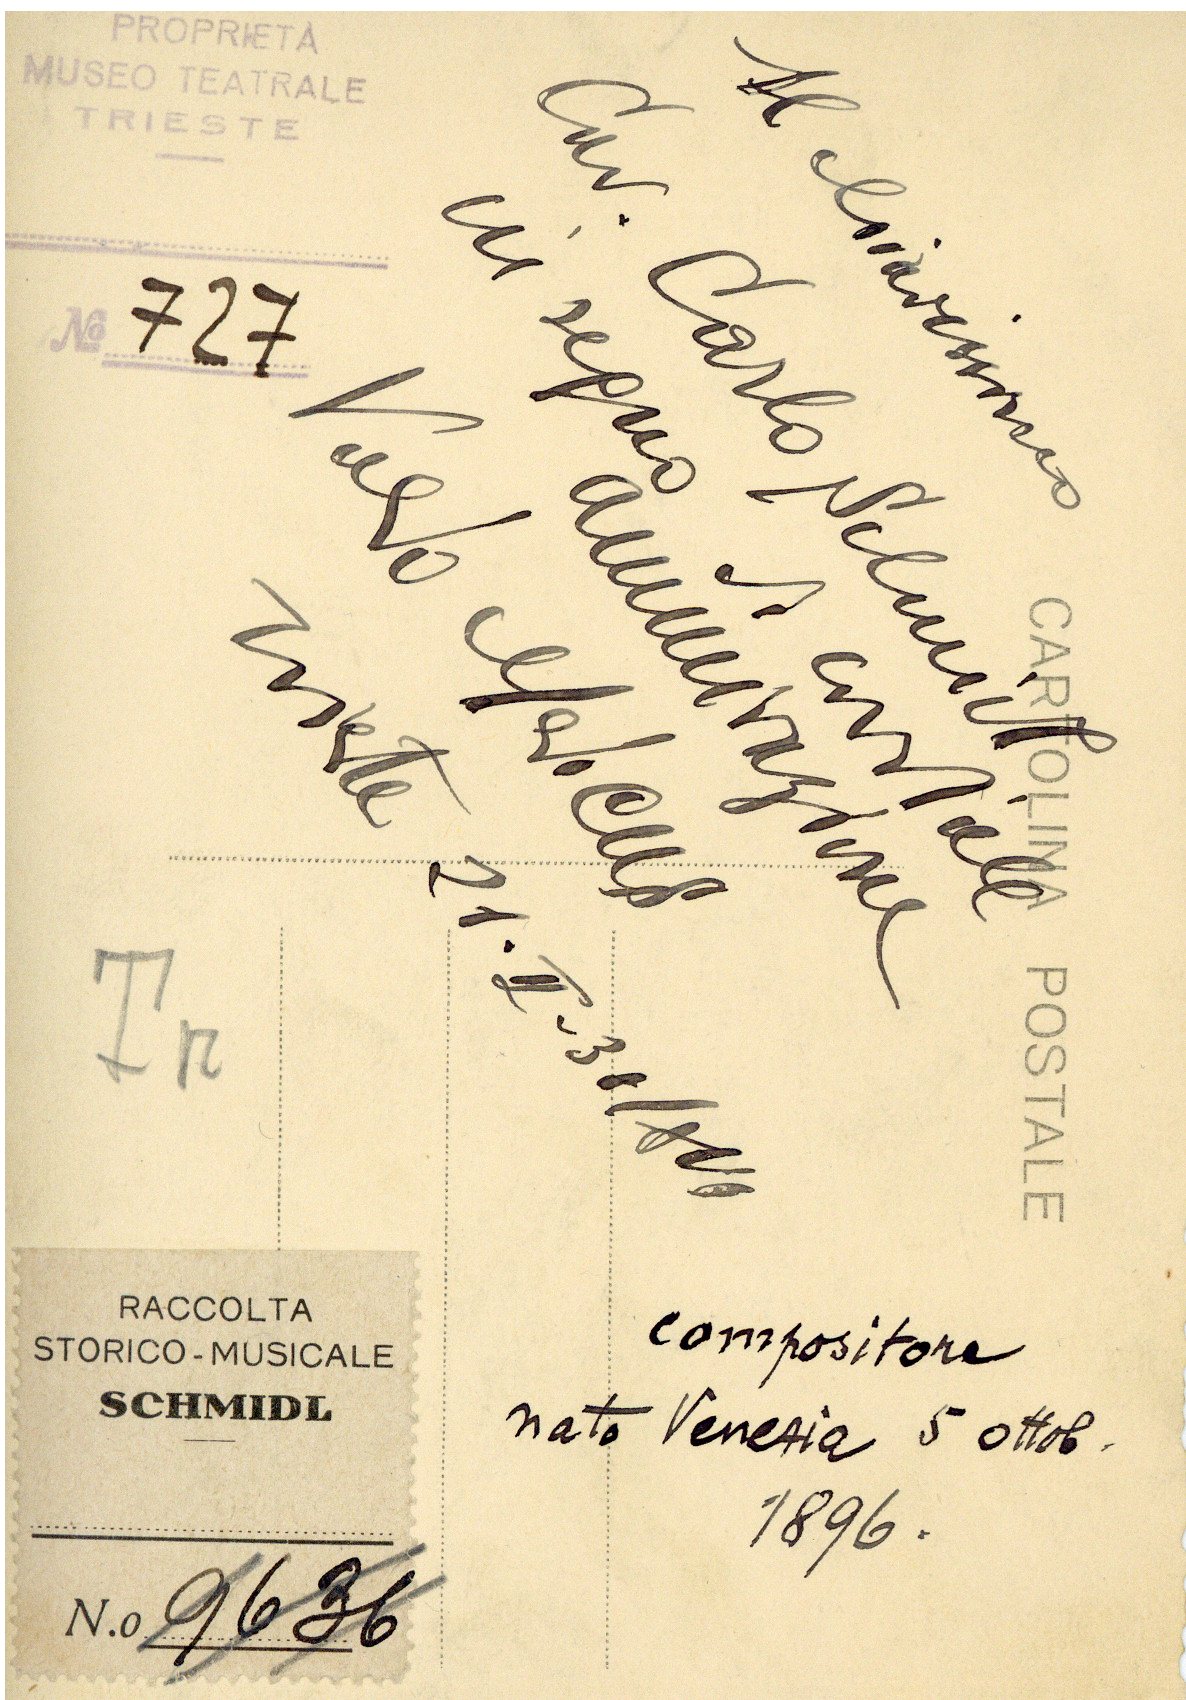 PROPRIETÀ
MUSEO TEATRALE
TRIESTE
No 727
Al chiarissimo
Cav. Carlo Schmidl
in segno di cordiale
ammirazione
Trieste
CARTOLINA POSTALE
Tr
RACCOLTA
STORICO-MUSICALE
SCHMIDL
N.o 9636
compositore
nato Venezia 5 ottob.
1896.